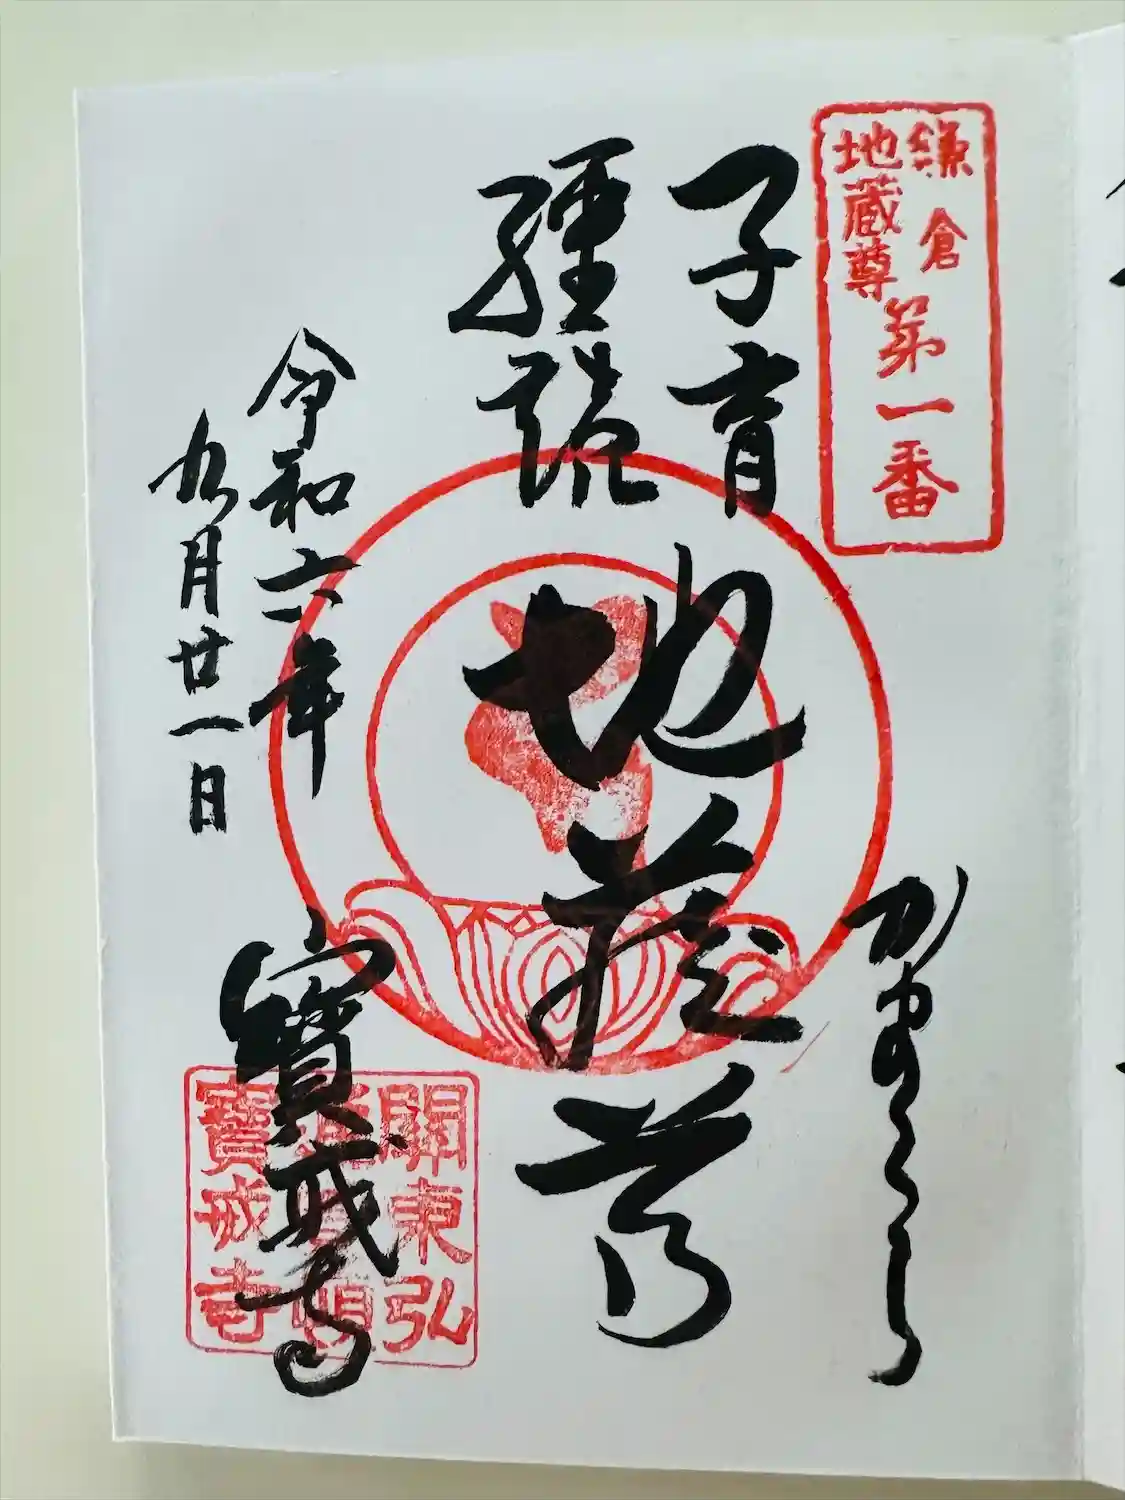 鎌倉
地蔵尊
第一番
かまくら
子育
経読
地蔵尊
令和六年
九月廿一日
寳戒寺
關東弘
寳戒寺